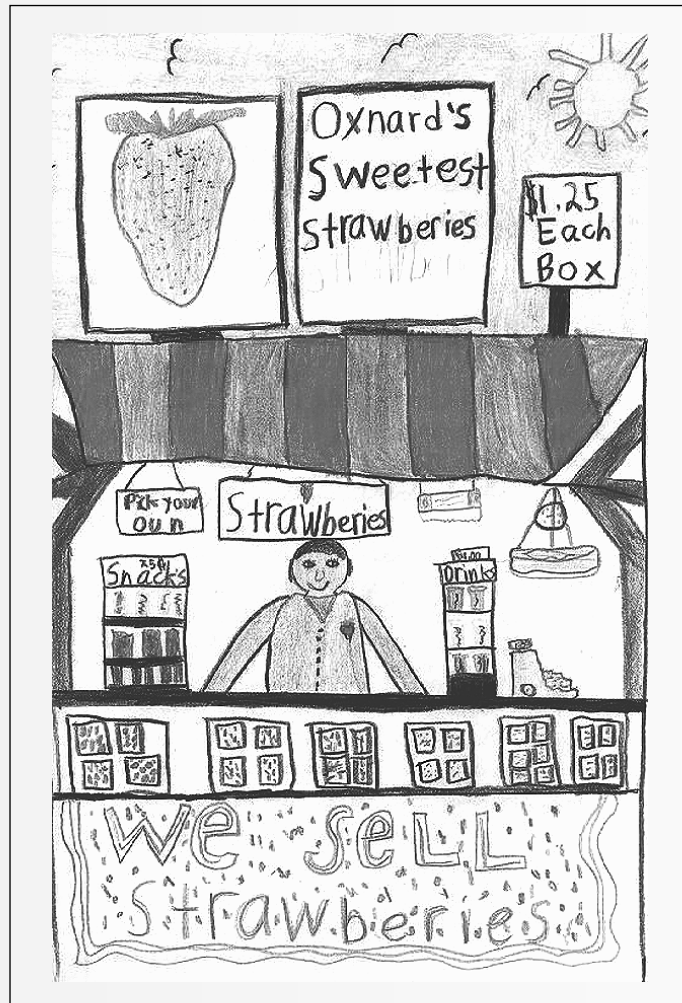 Oxnard's
Sweetest
Strawberies
$1.25
Each
Box
Pick your
own
Strawberies
Snacks
Drinks
We SeLL
Strawberies